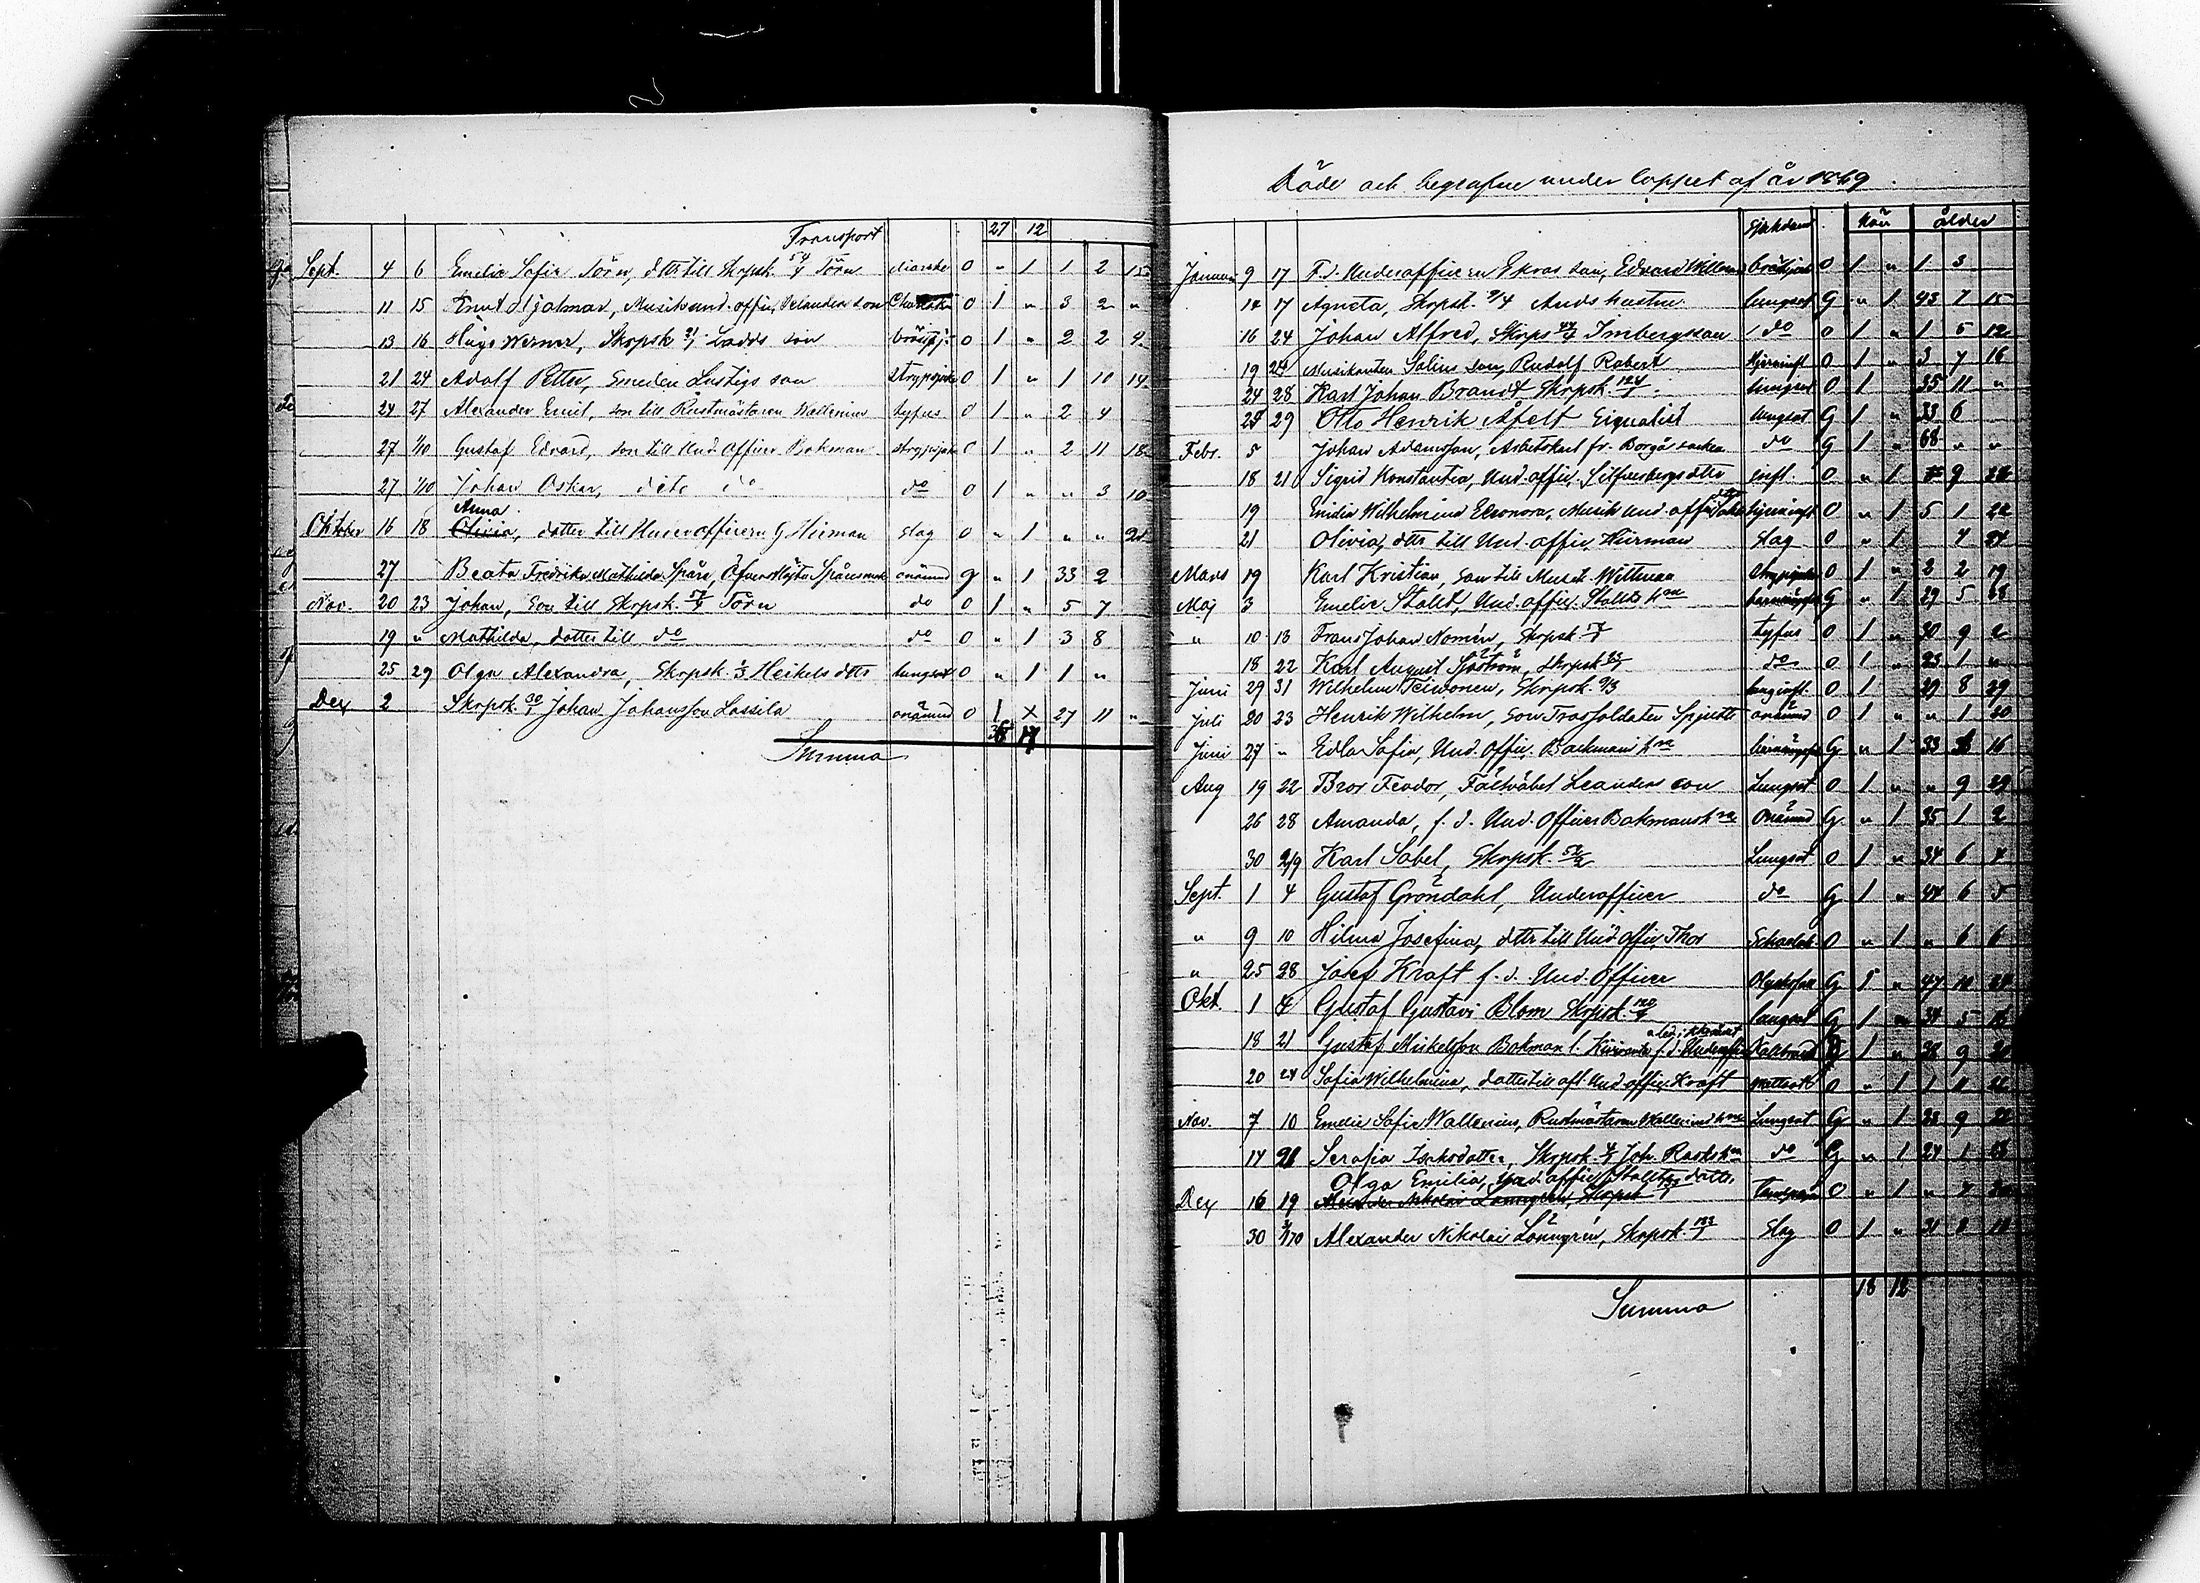 Transport 27 12
Sept. 4 6 Emilie Sofia Törn, dttr till Skrpsk. 54/4 Törn diarrhe O " 1 1 2 15
11 15 Knut Hjalmar, Musikund.offic. Velanders son O 1 " 3 2 "
13 16 Hugo Werner, Skrpsk 21/1 Ladds son bröstsj. O 1 " 2 2 9
21 24 Adolf Petter, Smeden Lustigs son strypsjuk O 1 " 1 10 14
24 27 Alexander Emil, son till Rustmästaren Wallenius tyfus O 1 " 2 4
27 1/10 Gustaf Edvard, son till Und.Officer Bakman strypsjuk O 1 " 2 11 18
27 1/10 Johan Oskar, dito do do O 1 " " 3 10
Anna
Oktober 16 18 Olivia, dotter till Underofficern G Hirman slag O " 1 " " 21
27 Beata Fredrika Mathilda Spåre, onämnd g " 1 33 2
Nov. 20 23 Johan, Son till Skrpsk. 54/4 Törn do O 1 " 5 7
19 " Mathilda, dotter till do do O " 1 3 8
25 29 Olga Alexandra, Skrpsk. 1/3 Heikels dttr lungsot O " 1 1 "
Dec 2 Skrpsk. 30/1 Johan Johansson Lassila onämnd O 1 27 11 "
Summa
Döde och begrafne under loppet af år 1869.
Sjukdom Kön ålder
Januari 9 17 F.d. Underofficern Ekros son, Edvard Willem bröstsjuk O 1 " 1 3
14 17 Agneta, Skrpsk. 9/4 Ands hustru lungsot G " 1 43 7 15
16 24 Johan Alfred, Skrps 44/4 Imbergs son do O 1 " 1 5 12
19 24 Musikanten Salins son, Rudolf Robert hjerninfl. O 1 " 3 7 16
24 28 Karl Johan Brandt Skrpsk. 124/1 lungsot O 1 35 11 "
25 29 Otto Henrik Åfelt Signalist lungsot G 1 " 33 6
Febr. 5 Johan Adamsson, Arbetskarl fr. Borgå socken do G 1 " 68 " "
18 21 Sigrid Konstantia, Und.offic. Silfversbergs dttr infl. O " 1 " 9
19 Emilia Wilhelmina Eleonora, Musik und.offic. hjerninfl O " 1 5 1 22
21 Olivia, dttr till Und.offic. Hirman slag O " 1 4 24
Mars 19 Karl Kristian, Son till Musik. Wittman strypsjuka O 1 " 2 2 19
Maj 3 Emelie Stollt, Und.offic. Stollts hru G " 1 29 5 28
" 10 13 Frans Johan Nomén, Skrpsk. tyfus O 1 " 30 9 2
18 22 Karl August Sjöström, Skrpsk 23/1 do O 1 " 23 1 "
Juni 29 31 Wilhelm Teivonen, Skrpsk. 9/3 lunginfl. O 1 29 8 29
Juli 20 23 Henrik Wilhelm, Son Trossoldaten Spjuts onämnd O 1 " " 1 20
Juni 27 " Edla Sofia, Und.Offic. Backmans hru G " 1 33 16
Aug 19 22 Bror Feodor, Fältväbel Leanders son Lungsot O 1 " " 9 29
26 28 Amanda, f.d. Und.Officer Bakmans hru Onämnd G. " 1 35 1 2
30 2/9 Karl Sabel, Skrpsk. 52/2 Lungsot O 1 " 34 6 4
Sept. 1 4 Gustaf Gröndahl, Underofficer do G 1 " 44 6 5
" 9 10 Hilma Josefina, dttr till Und offic. Thor Scharlak O " 1 " 6 6
" 25 28 Josef Kraft f.d. Und.Officer Olyckshän G 1 " 47 10 24
Okt. 1 4 Gustaf Gustavi Blom Skrpsk. 120/4 lungsot G 1 " 34 5 16
18 21 Gustaf Mickelsson Bakman l. f.d. Underoffic Kallbrand 1 " 38 9 20
20 24 Sofia Wilhelmina, dotter till afl. Und.offic. Kraft O " 1 1 11 22
Nov. 7 10 Emelie Sofie Wallenius, Rustmästaren Wallenius hru Lungsot G " 1 33 9 22
17 21 Serafia Isaksdotter, Skrpsk. Joh. Rasks hru do G " 1 24 1 18
Olga Emilia, Und.offic. Stollts dotter
Dec 16 19 Alexander Nikolai Lönngrén, Skrpsk O " 1 " 7 20
30 2/1 70 Alexander Nikolai Lönngrén, Skrpsk. 133/1 Slag O 1 " 31 2 18
18 12
Summa